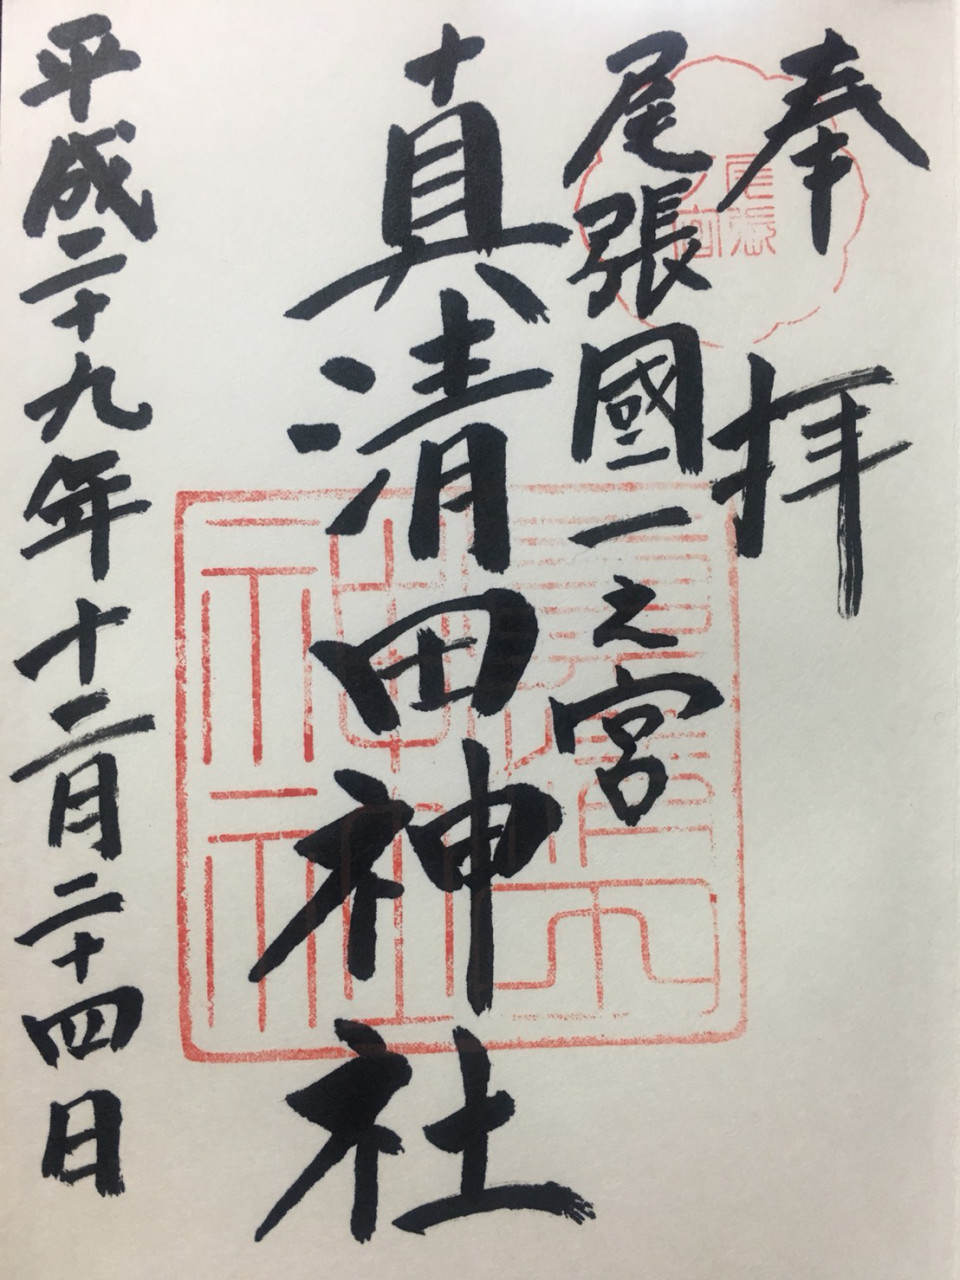 奉拝
尾張國一之宮
真清田神社
平成二十九年十二月二十四日
尾張